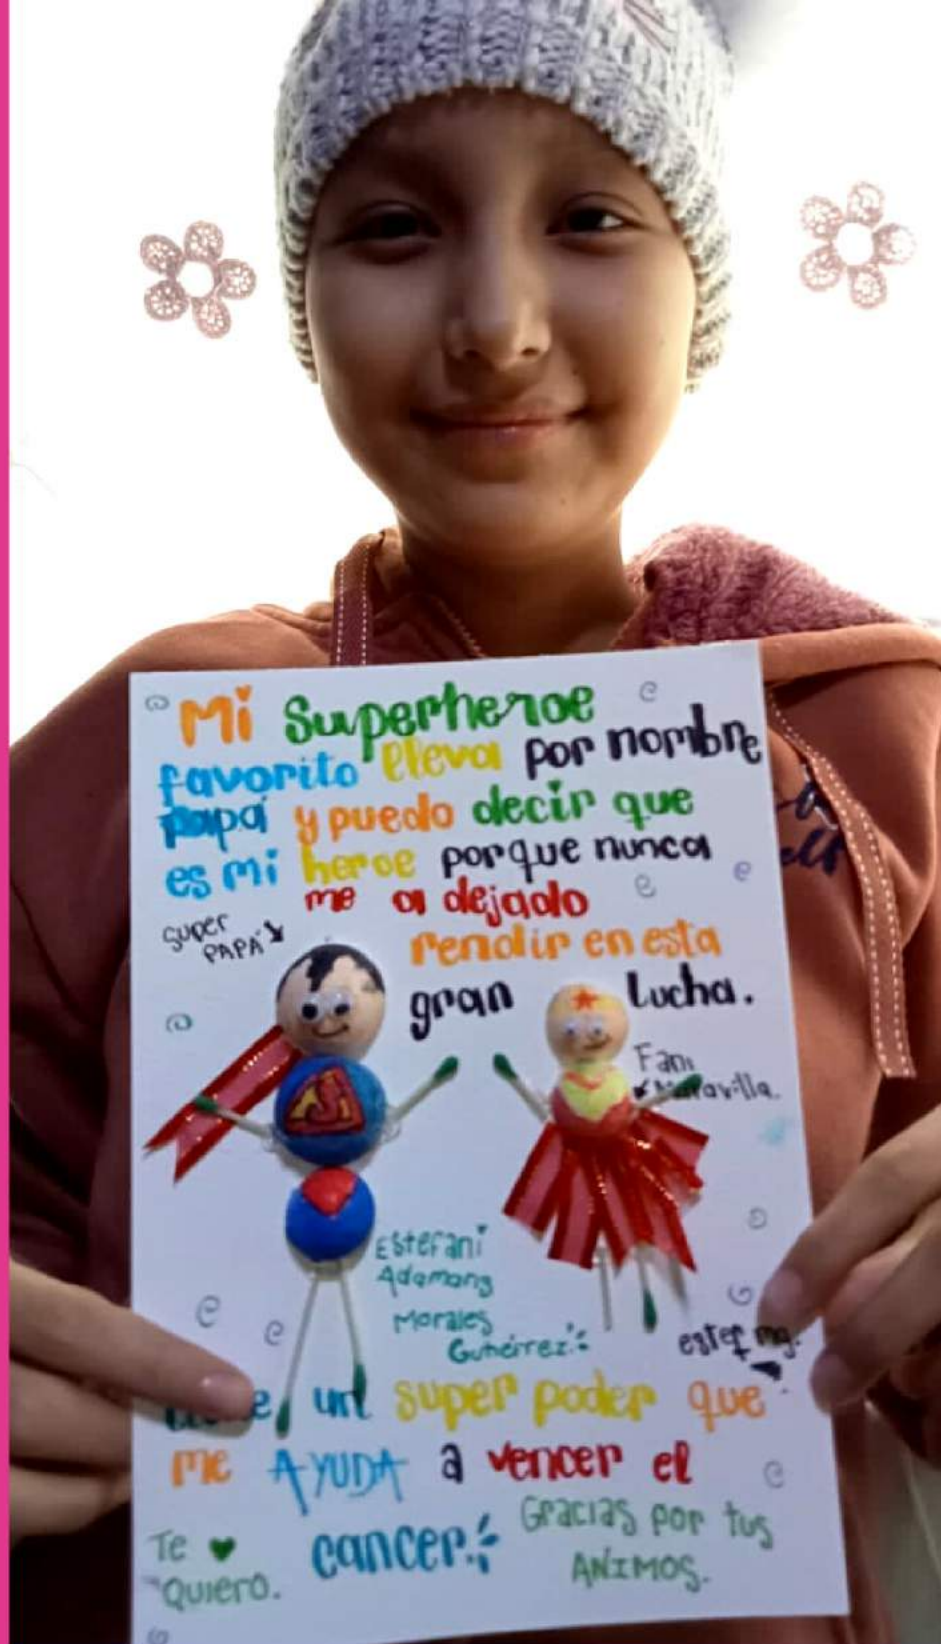 Mi Superheroe
favorito lleva por nombre
papá y puedo decir que
es mi heroe porque nunca
me a dejado
rendir en esta
gran lucha.
super
PAPÁ
Fani
Maravilla.
Estefani
Adamang
Morales
Gutiérrez
un super poder que
me AYUDA a vencer el
cancer.
Te
Quiero.
Gracias por tus
ANIMOS.